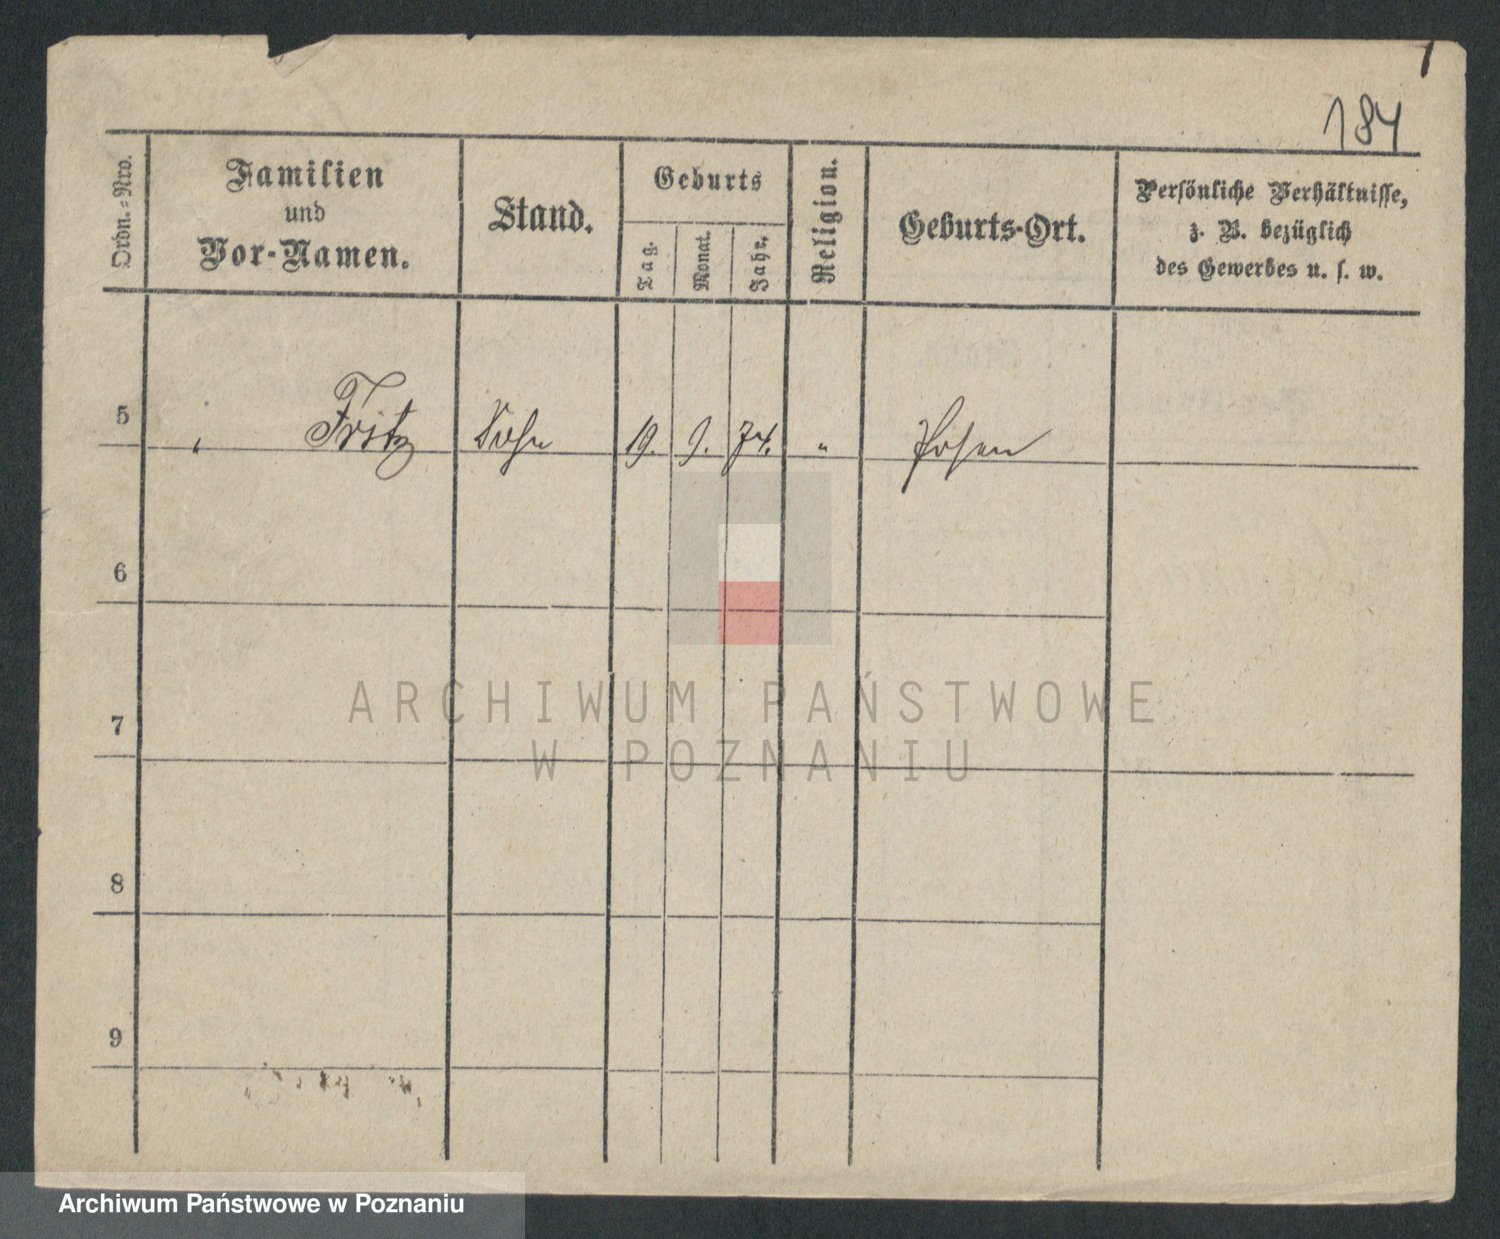 184
Ordn.-Nro.
Familien
und
Vor-Namen.
Stand.
Geburts
Tag.
Monat.
Jahr.
Religion.
Geburts-Ort.
Persönliche Verhältnisse,
z. B. bezüglich
des Gewerbes u. s. w.
5 " Fritz Sohn 19. 9. 74. " Posen
6
7
8
9
ARCHIWUM PAŃSTWOWE
W POZNANIU
Archiwum Państwowe w Poznaniu